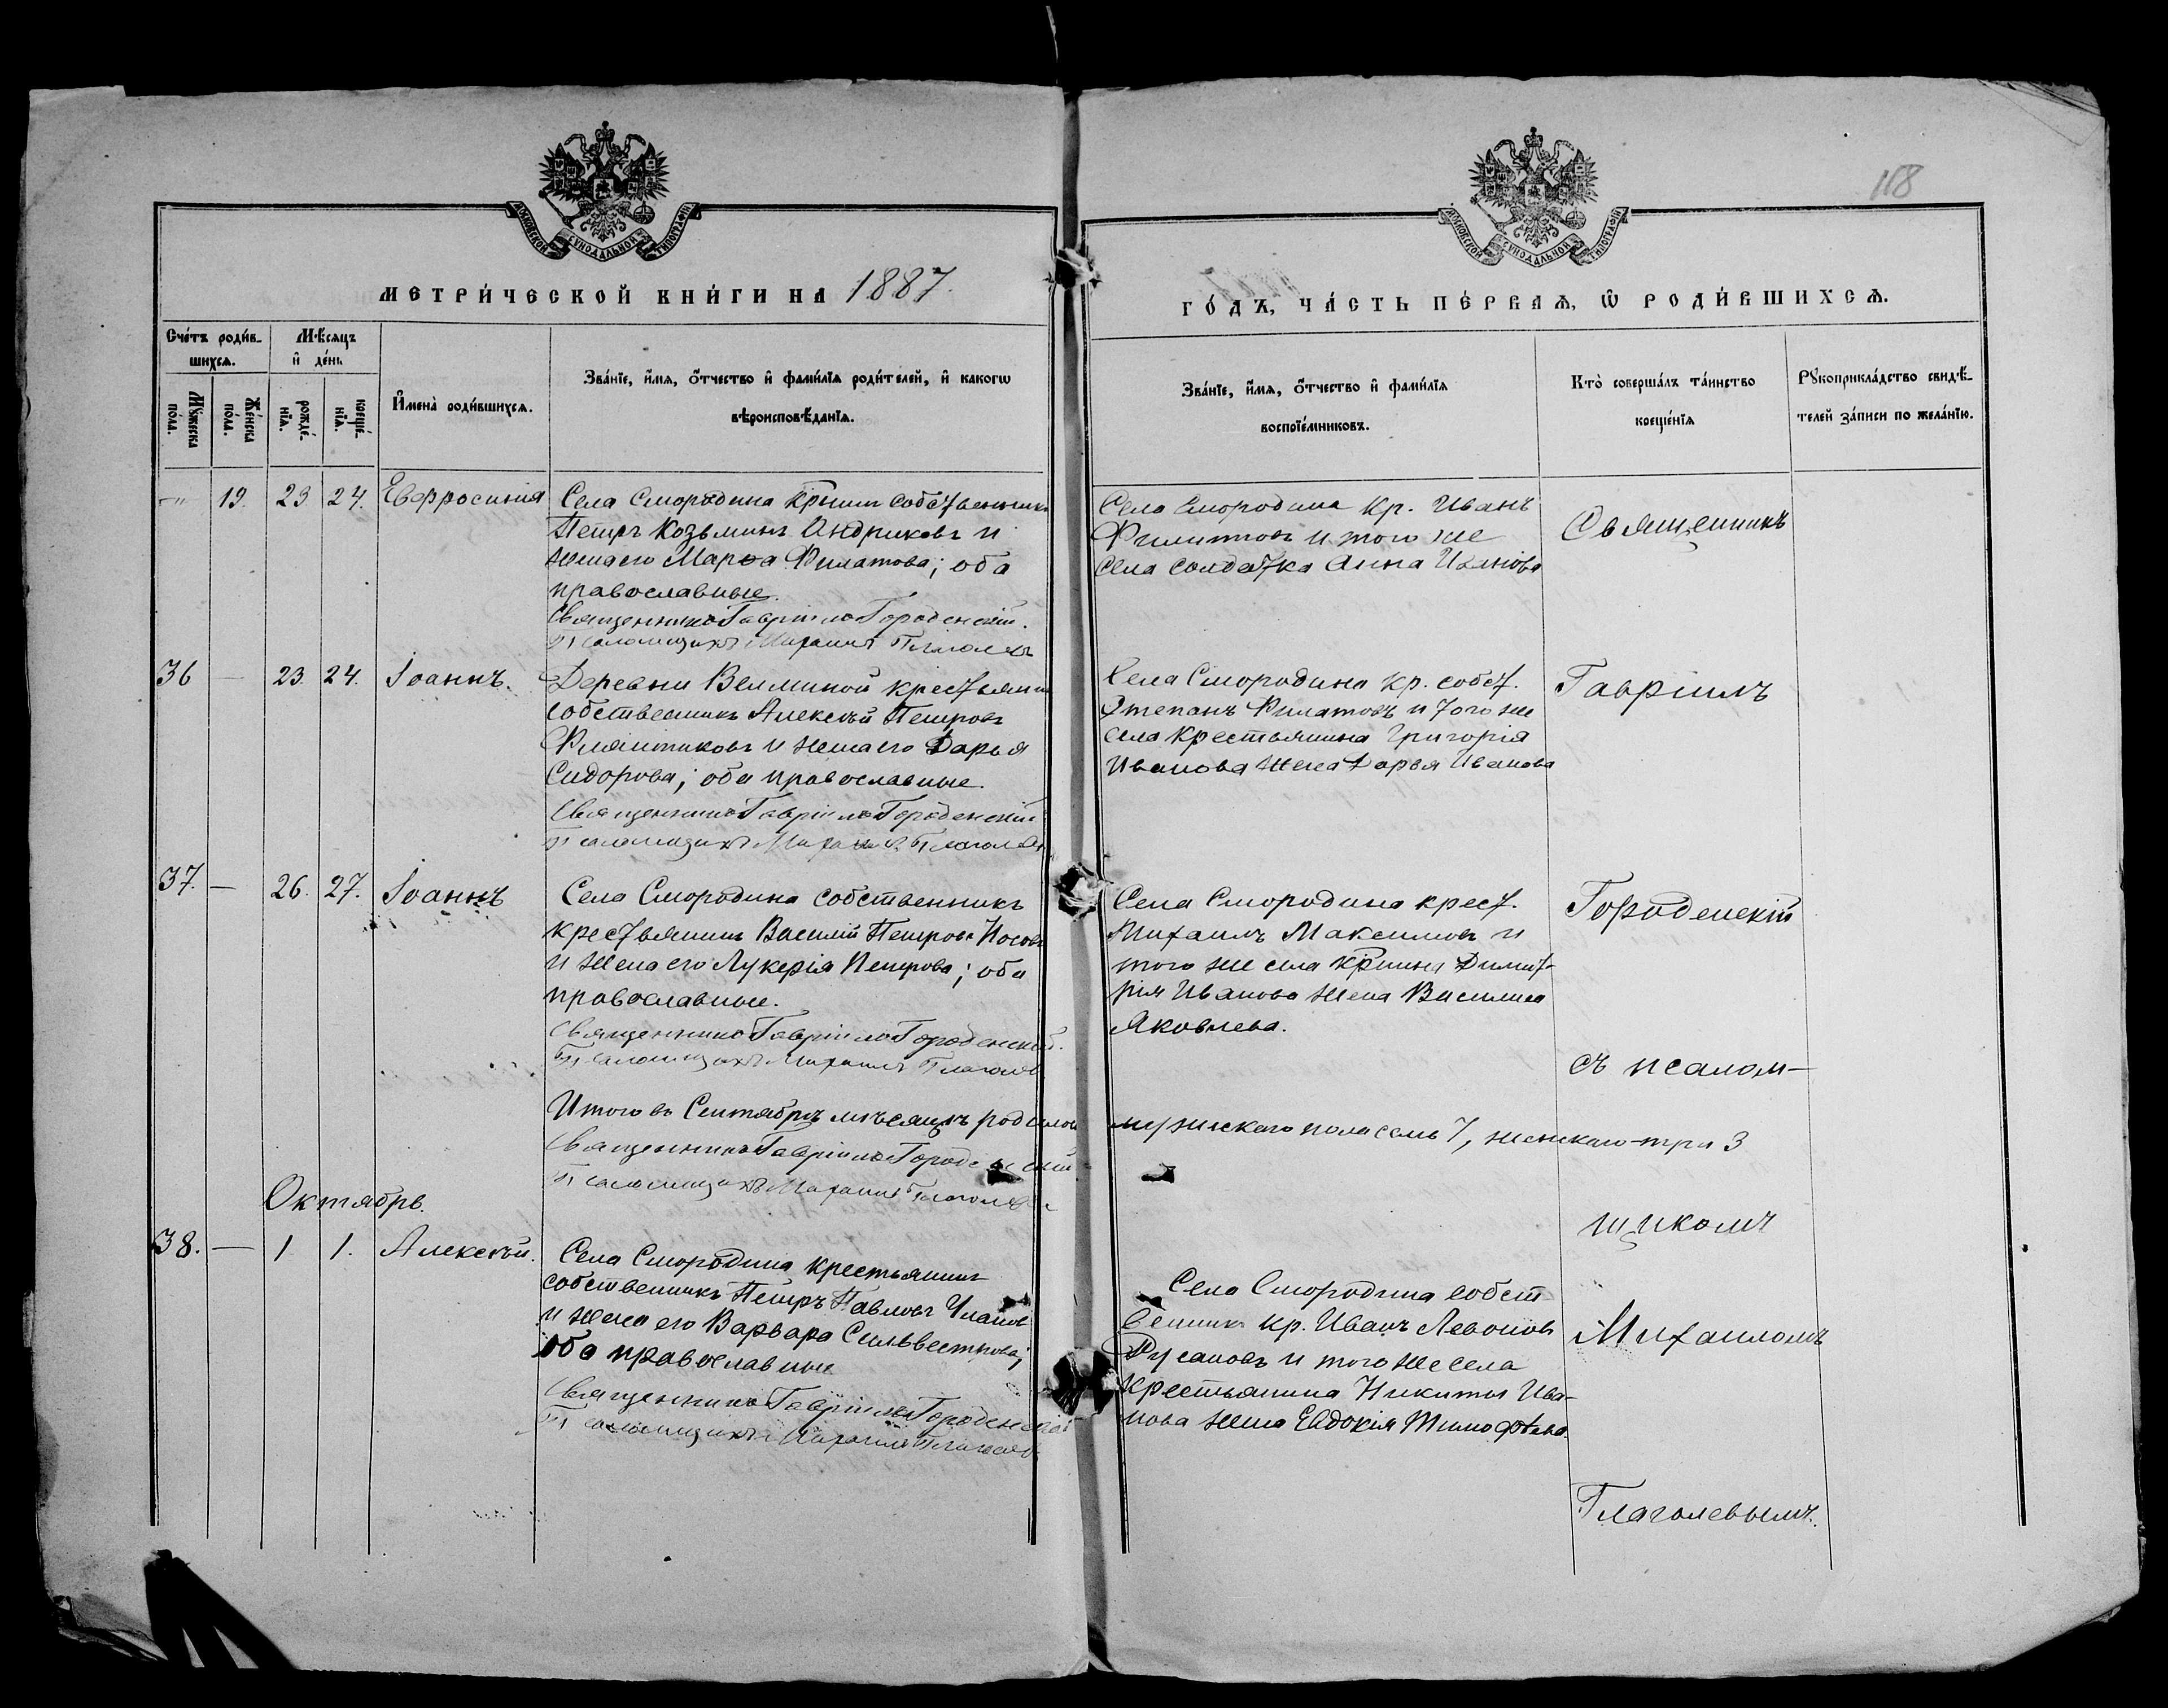 118
МОСКОВСКОЙ СѴНОДАЛЬНОЙ ТИПОГРАФІИ
МОСКОВСКОЙ СѴНОДАЛЬНОЙ ТИПОГРАФІИ
МЕТРИ́ЧЕСКОЙ КНИ́ГИ НА 1887.
ГО́ДЪ, ЧА́СТЬ ПЕ́РВАѦ, Ѽ РОДИ́ВШИХСѦ.
Сче́тъ роди́в-
шихсѧ.
Мѣ́сѧцъ
и҆ де́нь
Мꙋ́жеска
по́ла.
Же́нска
по́ла.
рожде́-
нїѧ.
креще́-
нїѧ.
И҆мена̀ роди́вшихсѧ.
Зва́нїе, и҆́мѧ, ѻ҆́тчество и҆ фами́лїѧ роди́телей, и҆ како́гѡ
вѣроисповѣ́данїѧ.
Зва́нїе, и҆́мѧ, ѻ҆́тчество и҆ фами́лїѧ
воспрїе́мниковъ.
Кто̀ соверша́лъ та́инство
креще́нїѧ
Рꙋкоприкла́дство свидѣ́-
телей за́писи по жела́нїю.
-"- 19. 23 24. Евфросинія
Села Смородина крнин собственникъ
Петръ Козьминъ Андриковъ и
жена его Марѳа Филатова; оба
православные.
Священникъ Гавріилъ Городенскій.
Псаломщикъ Михаилъ Глаголевъ
Село Смородина Кр. Иванъ
Филиповъ и того же
села солдатка Анна Иванова
Священникъ
36 — 23. 24. Іоаннъ.
Деревни Вялминой крестьянин
собственникъ Алексѣй Петровъ
и жена его Дарья
Сидорова; оба православные.
Священникъ Гавріилъ Городенскій
Псаломщикъ Михаилъ Глаголевъ
Села Смородина кр. собст.
Степанъ Филатовъ и того же
села крестьянина Григорія
Иванова жена Дарья Иванова
Гавріилъ
37. — 26. 27. Іоаннъ
Села Смородина собственникъ
крестьянинъ Василій Петровъ Носовъ
и жена его Лукерія Петрова; оба
православные.
Священникъ Гавріилъ Городенскій.
Псаломщикъ Михаилъ Глаголевъ
Села Смородина крест.
Михаилъ Максимовъ и
того же села крнина Димит-
рія Иванова жена Василиса
Яковлева.
Городенскій
съ псалом-
Итого въ Сентябрѣ мѣсяцѣ родилось мужескаго пола семь 7, женскаго-три 3
Священникъ Гавріилъ Городенскій
Псаломщикъ Михаилъ Глаголевъ
Октябрь.
щикомъ
38. — 1 1. Алексѣй.
Села Смородина крестьянинъ
собственникъ Петръ Павловъ
и жена его Варвара Сильвестрова;
оба православные
Священникъ Гавріилъ Городенскій
Псаломщикъ Михаилъ Глаголевъ
Села Смородина собст
венник кр. Иванъ Левоновъ
Русановъ и того же села
крестьянина Никиты Ива-
нова жена Евдокія Тимофѣева.
Михаиломъ
Глаголевымъ.